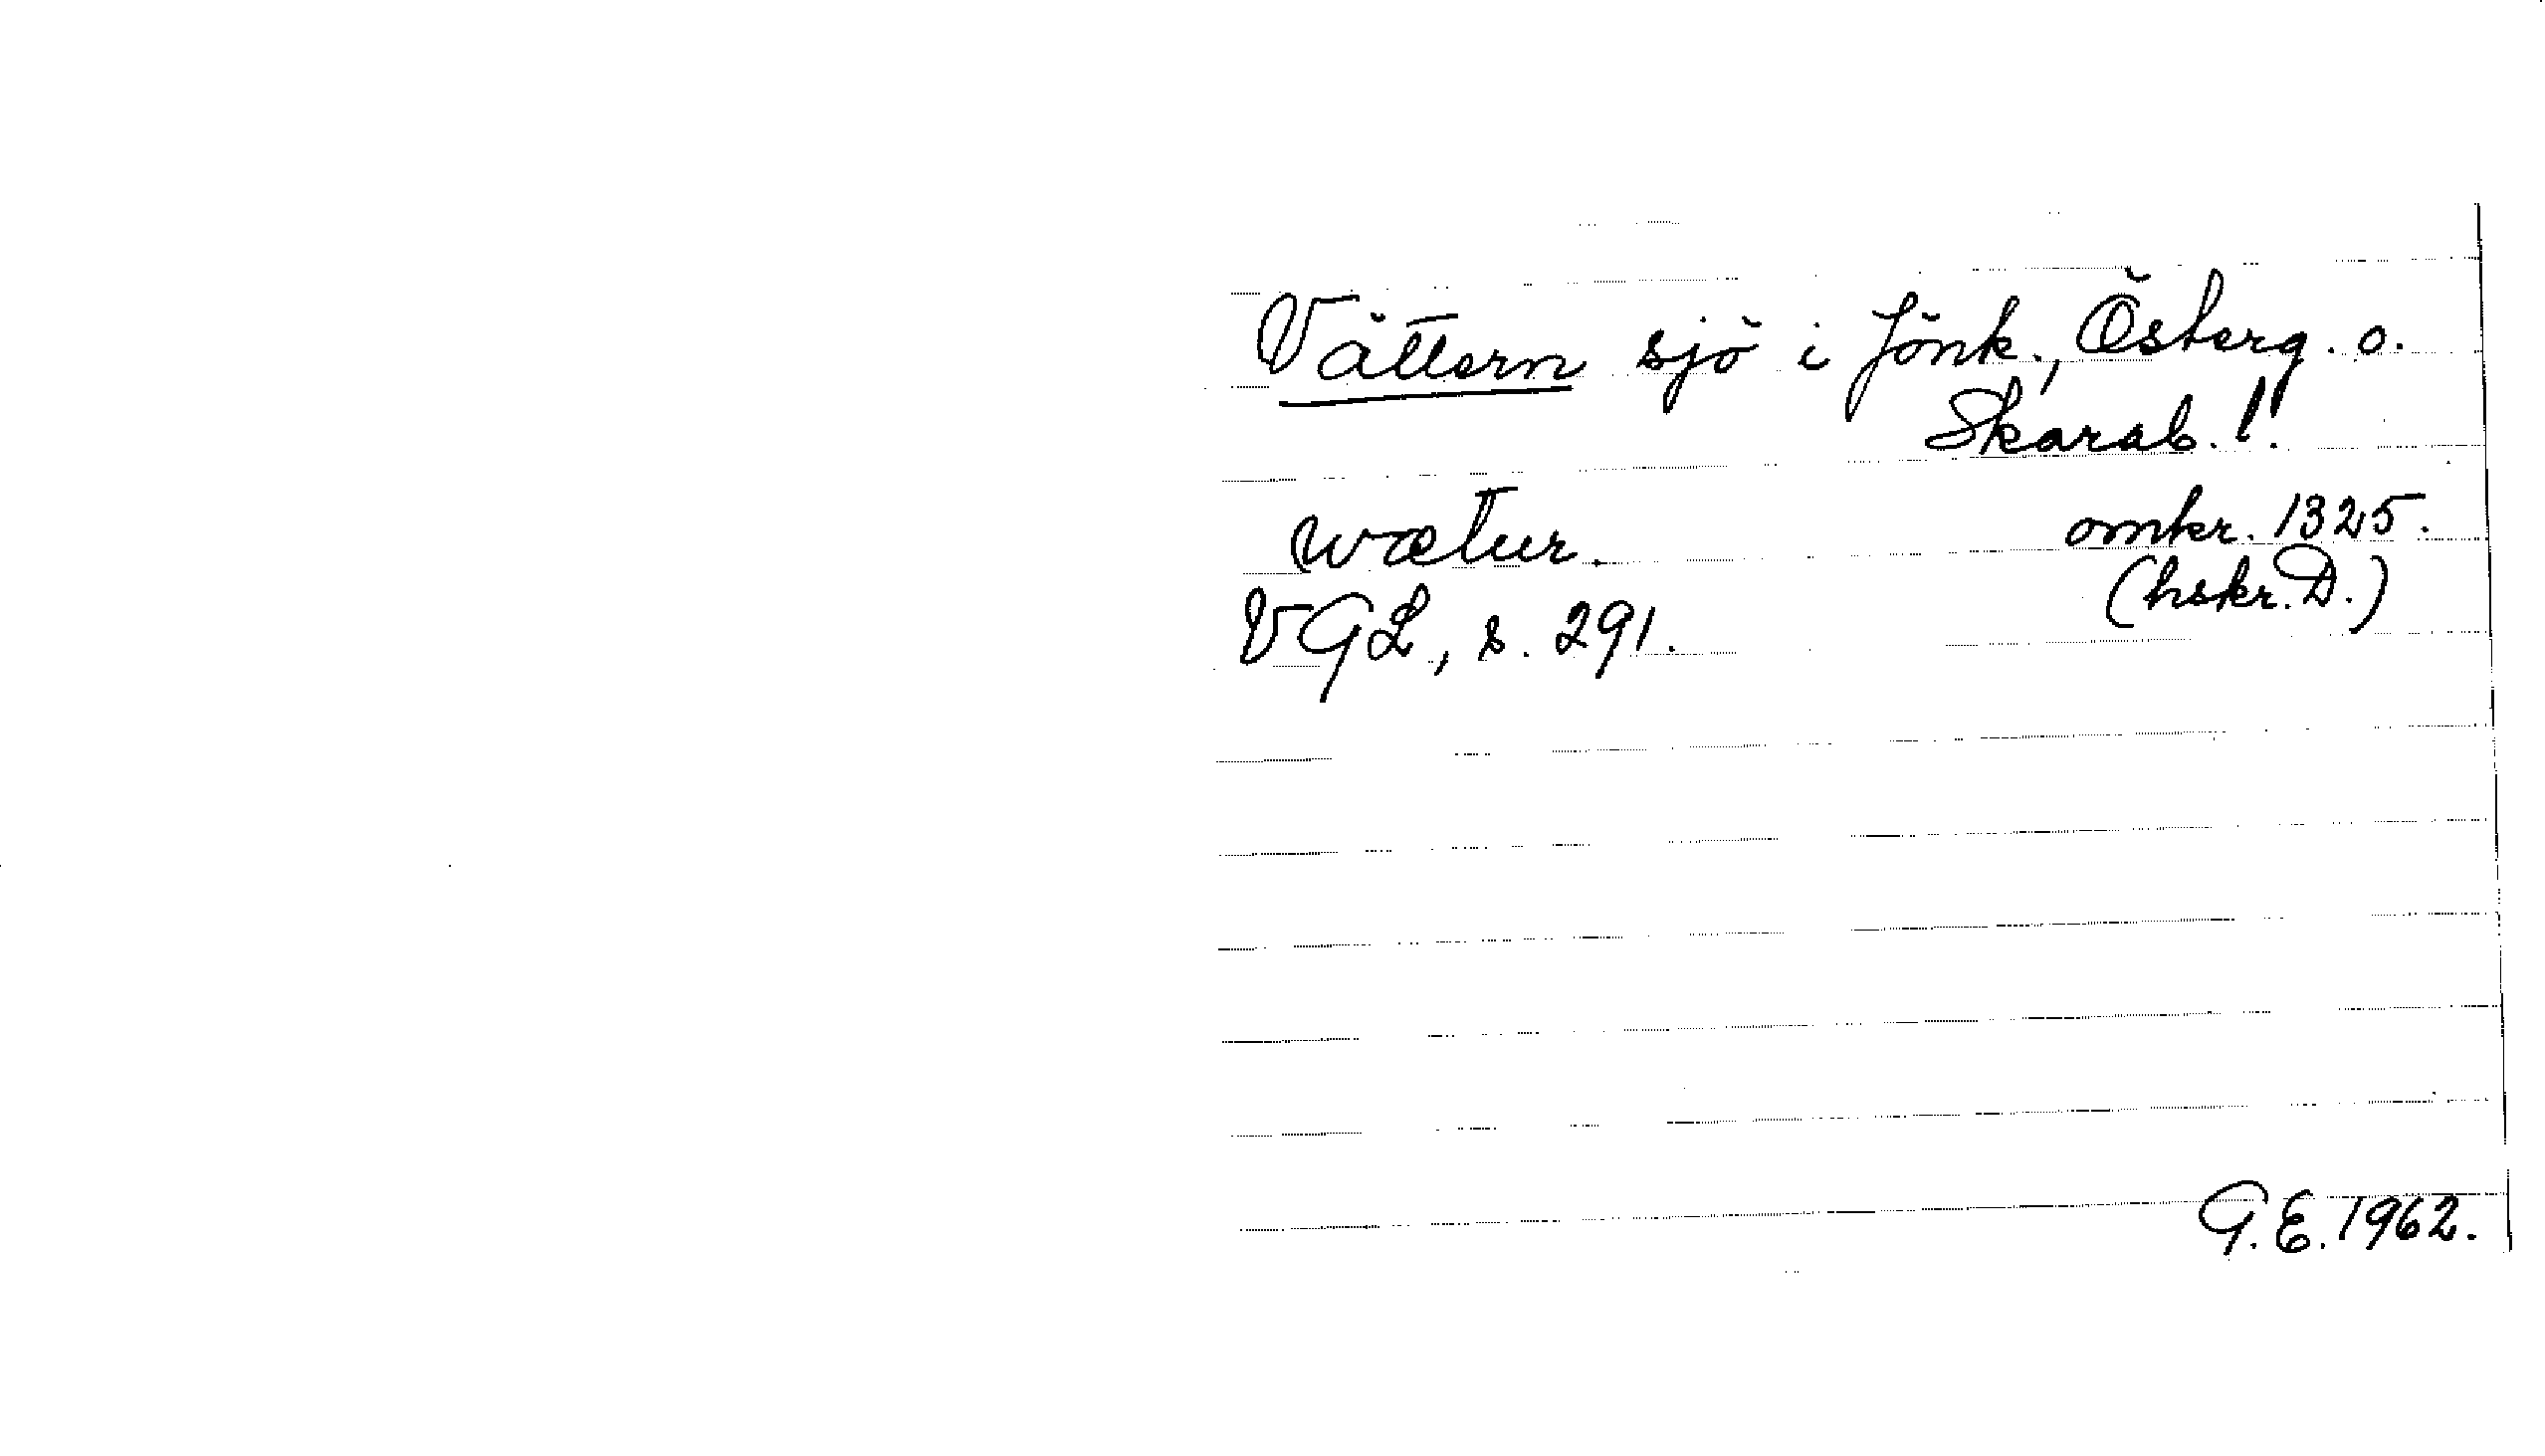 Vättern sjö i Jönk., Österg. o.
Skarab. l!
wætur. omkr. 1325.
(hskr. D.)
VGL, s. 291.
G.E. 1962.